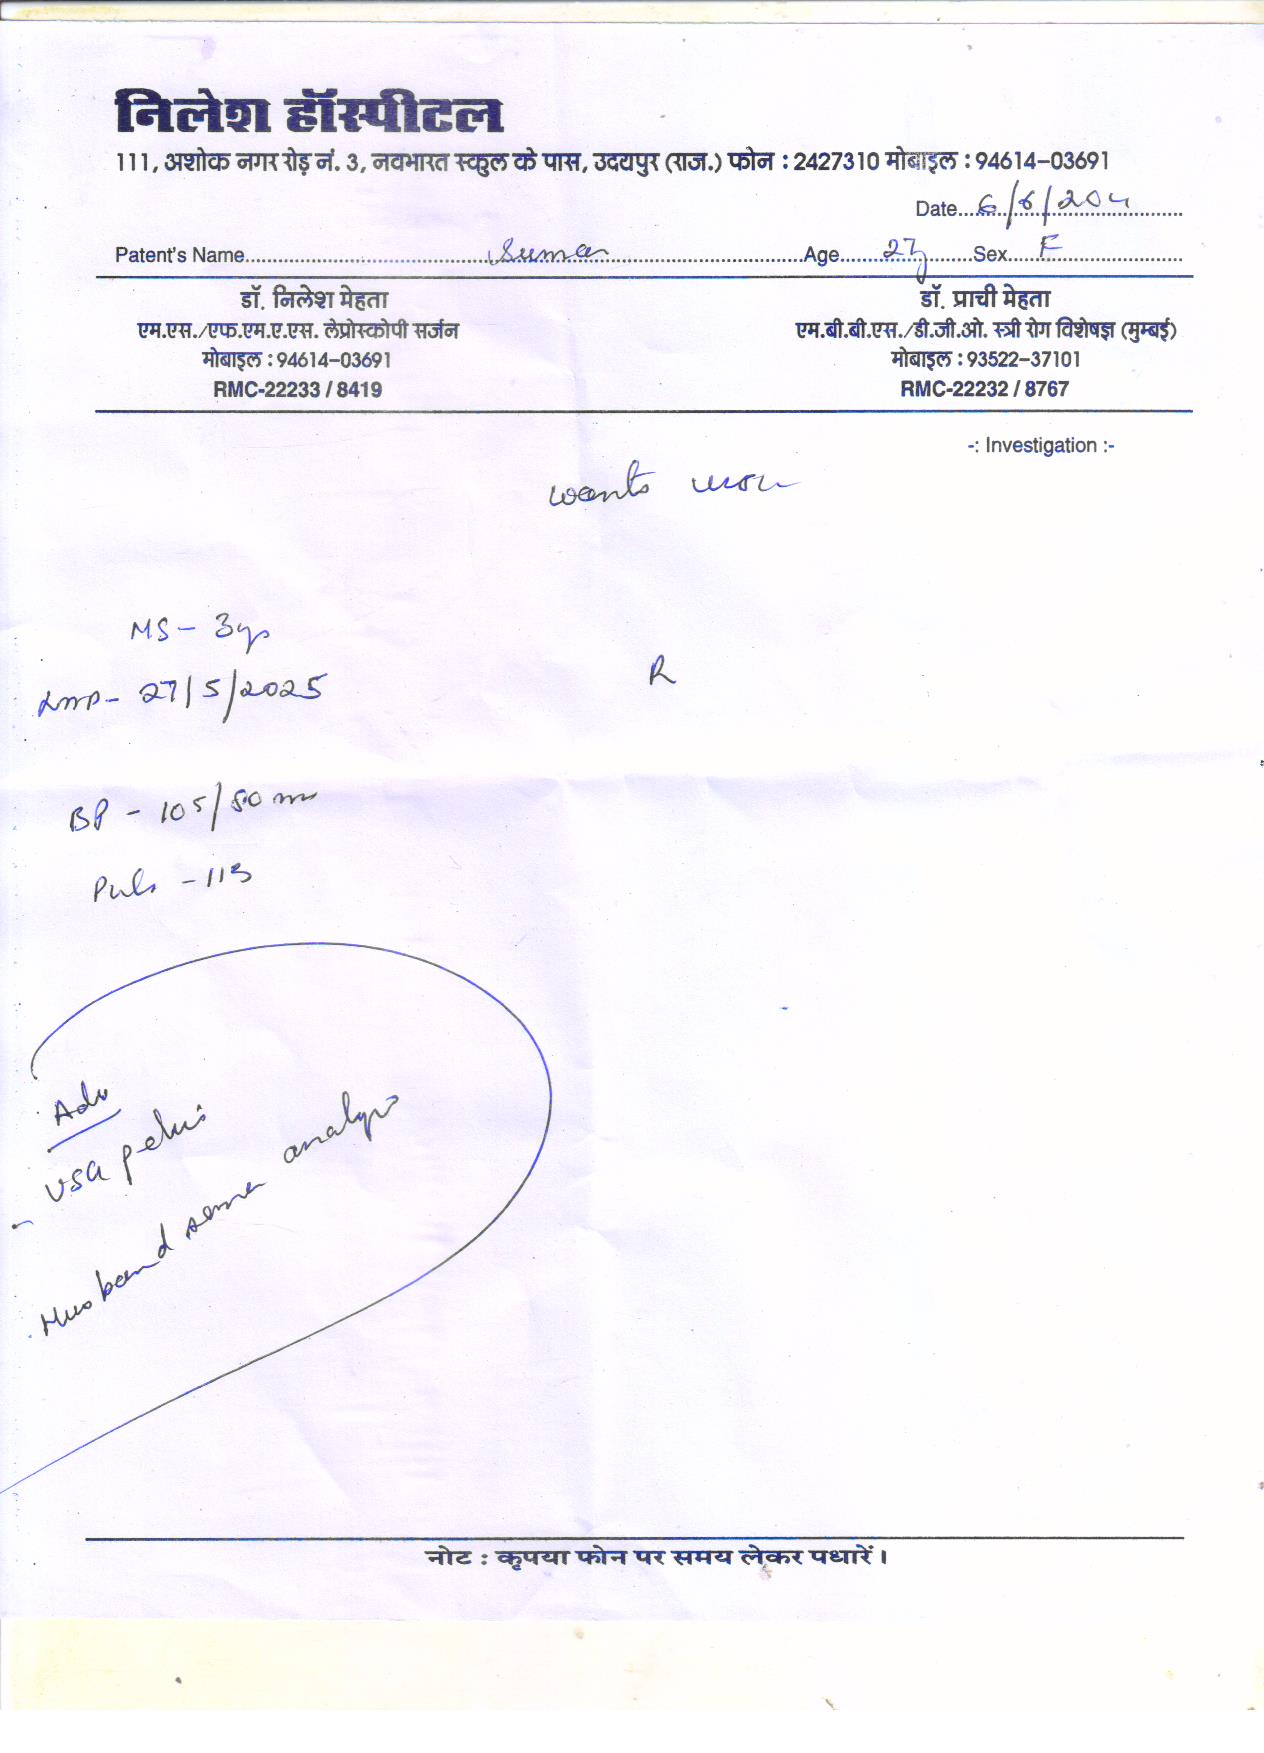 निलेश हॉस्पीटल
111, अशोक नगर रोड़ नं. 3, नवभारत स्कुल के पास, उदयपुर (राज.) फोन : 2427310 मोबाइल : 94614-03691
Date 6/6/20
Patent's Name Suman Age 27y Sex F
डॉ. निलेश मेहता
एम.एस./एफ.एम.ए.एस. लेप्रोस्कोपी सर्जन
मोबाइल : 94614-03691
RMC-22233 / 8419
डॉ. प्राची मेहता
एम.बी.बी.एस./डी.जी.ओ. स्त्री रोग विशेषज्ञ (मुम्बई)
मोबाइल : 93522-37101
RMC-22232 / 8767
-: Investigation :-
wants
MS - 3yrs
R
LMP - 27/5/2025
BP - 105/80 mm
Puls - 113
Adv
USG pelvis
Husband semen analysis
नोट : कृपया फोन पर समय लेकर पधारें।